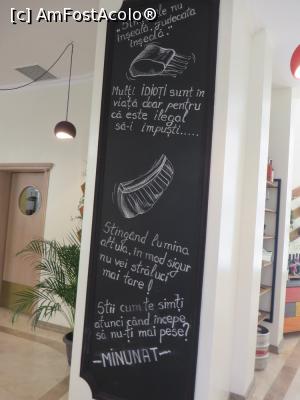 [c] AmFostAcolo®
„Simțurile nu
înșeală, judecata
înșeală."
Mulți IDIOȚI sunt în
viață doar pentru
că este ilegal
să-i împuști.....
Stingând lumina
altuia, în mod sigur
nu vei străluci
mai tare!
Știi cum te simți
atunci când începe
să nu-ți mai pese?
-MINUNAT-